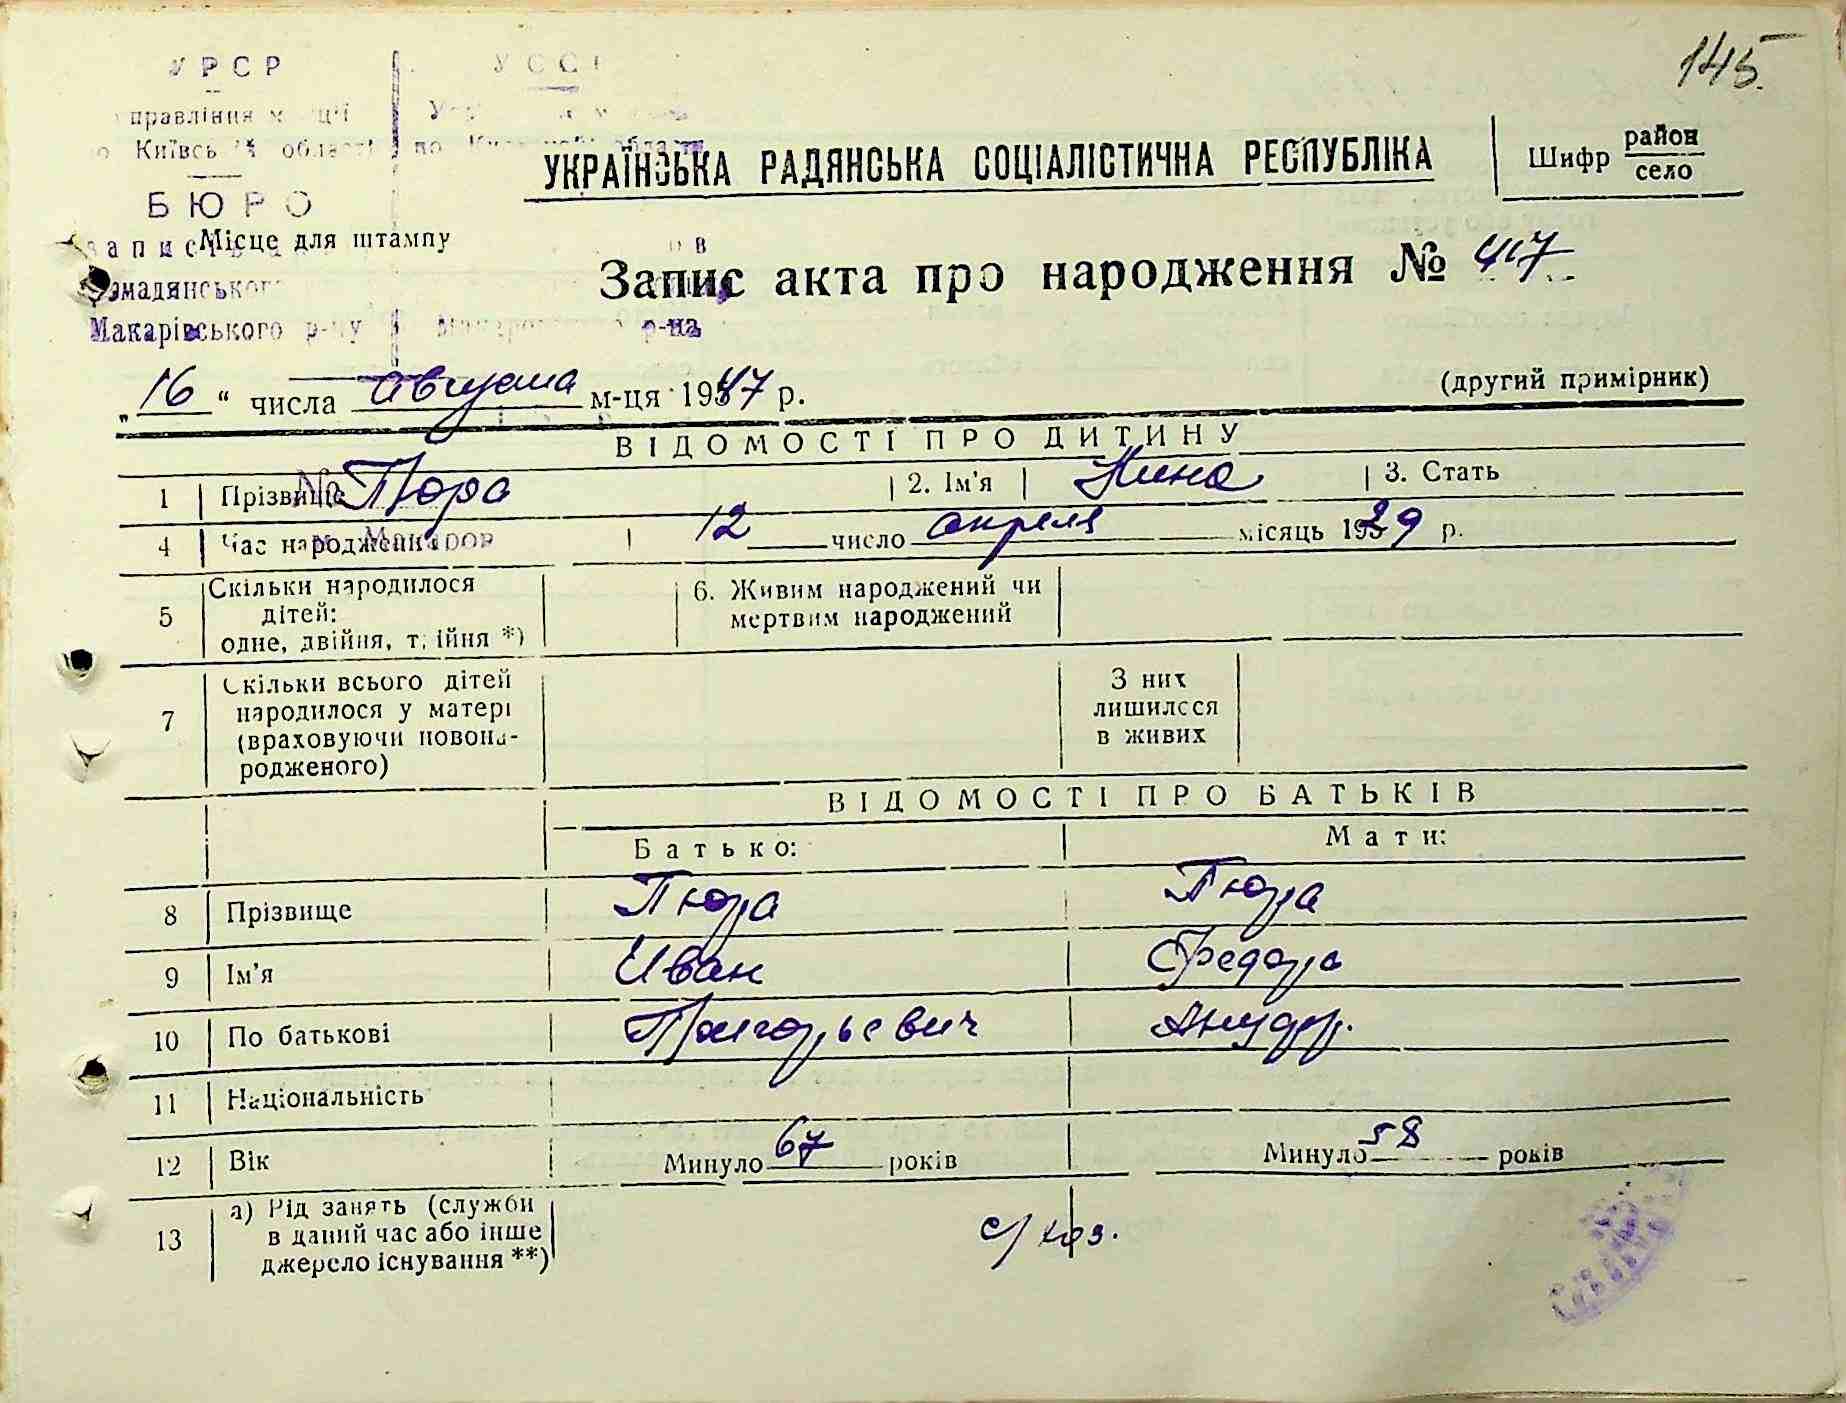 145.
УРСР УССР
Київсь області
БЮРО
Місце для штампу
Макарівського р-ну р-на
УКРАЇНСЬКА РАДЯНСЬКА СОЦІАЛІСТИЧНА РЕСПУБЛІКА
Шифр район
село
Запис акта про народження № 417
„16“ числа августа м-ця 1947 р. (другий примірник)
ВІДОМОСТІ ПРО ДИТИНУ
1 Прізвище Пюра 2. Ім'я Нина 3. Стать
4 Час народження 12 число апреля місяць 1929 р.
5 Скільки народилося
дітей:
одне, двійня, трійня *)
6. Живим народжений чи
мертвим народжений
7 Скільки всього дітей
народилося у матері
(враховуючи новона-
родженого)
З них
лишилося
в живих
ВІДОМОСТІ ПРО БАТЬКІВ
Батько: Мати:
8 Прізвище Пюра Пюра
9 Ім'я Иван Федора
10 По батькові Григорьевич
11 Національність
12 Вік Минуло 67 років Минуло 58 років
13 а) Рід занять (служби
в даний час або інше
джерело існування **)
с/хоз.